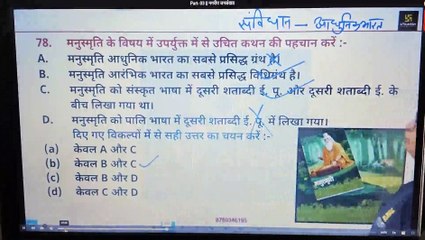 संविधान — आधुनिक भारत
78. मनुस्मृति के विषय में उपर्युक्त में से उचित कथन की पहचान करें :-
A. मनुस्मृति आधुनिक भारत का सबसे प्रसिद्ध ग्रंथ है।
B. मनुस्मृति आरंभिक भारत का सबसे प्रसिद्ध विधिग्रंथ है।
C. मनुस्मृति को संस्कृत भाषा में दूसरी शताब्दी ई. पू. और दूसरी शताब्दी ई. के
बीच लिखा गया था।
D. मनुस्मृति को पालि भाषा में दूसरी शताब्दी ई. पू. में लिखा गया।
दिए गए विकल्पों में से सही उत्तर का चयन करें :-
(a) केवल A और C
(b) केवल B और C
(c) केवल B और D
(d) केवल C और D
मनुस्मृति